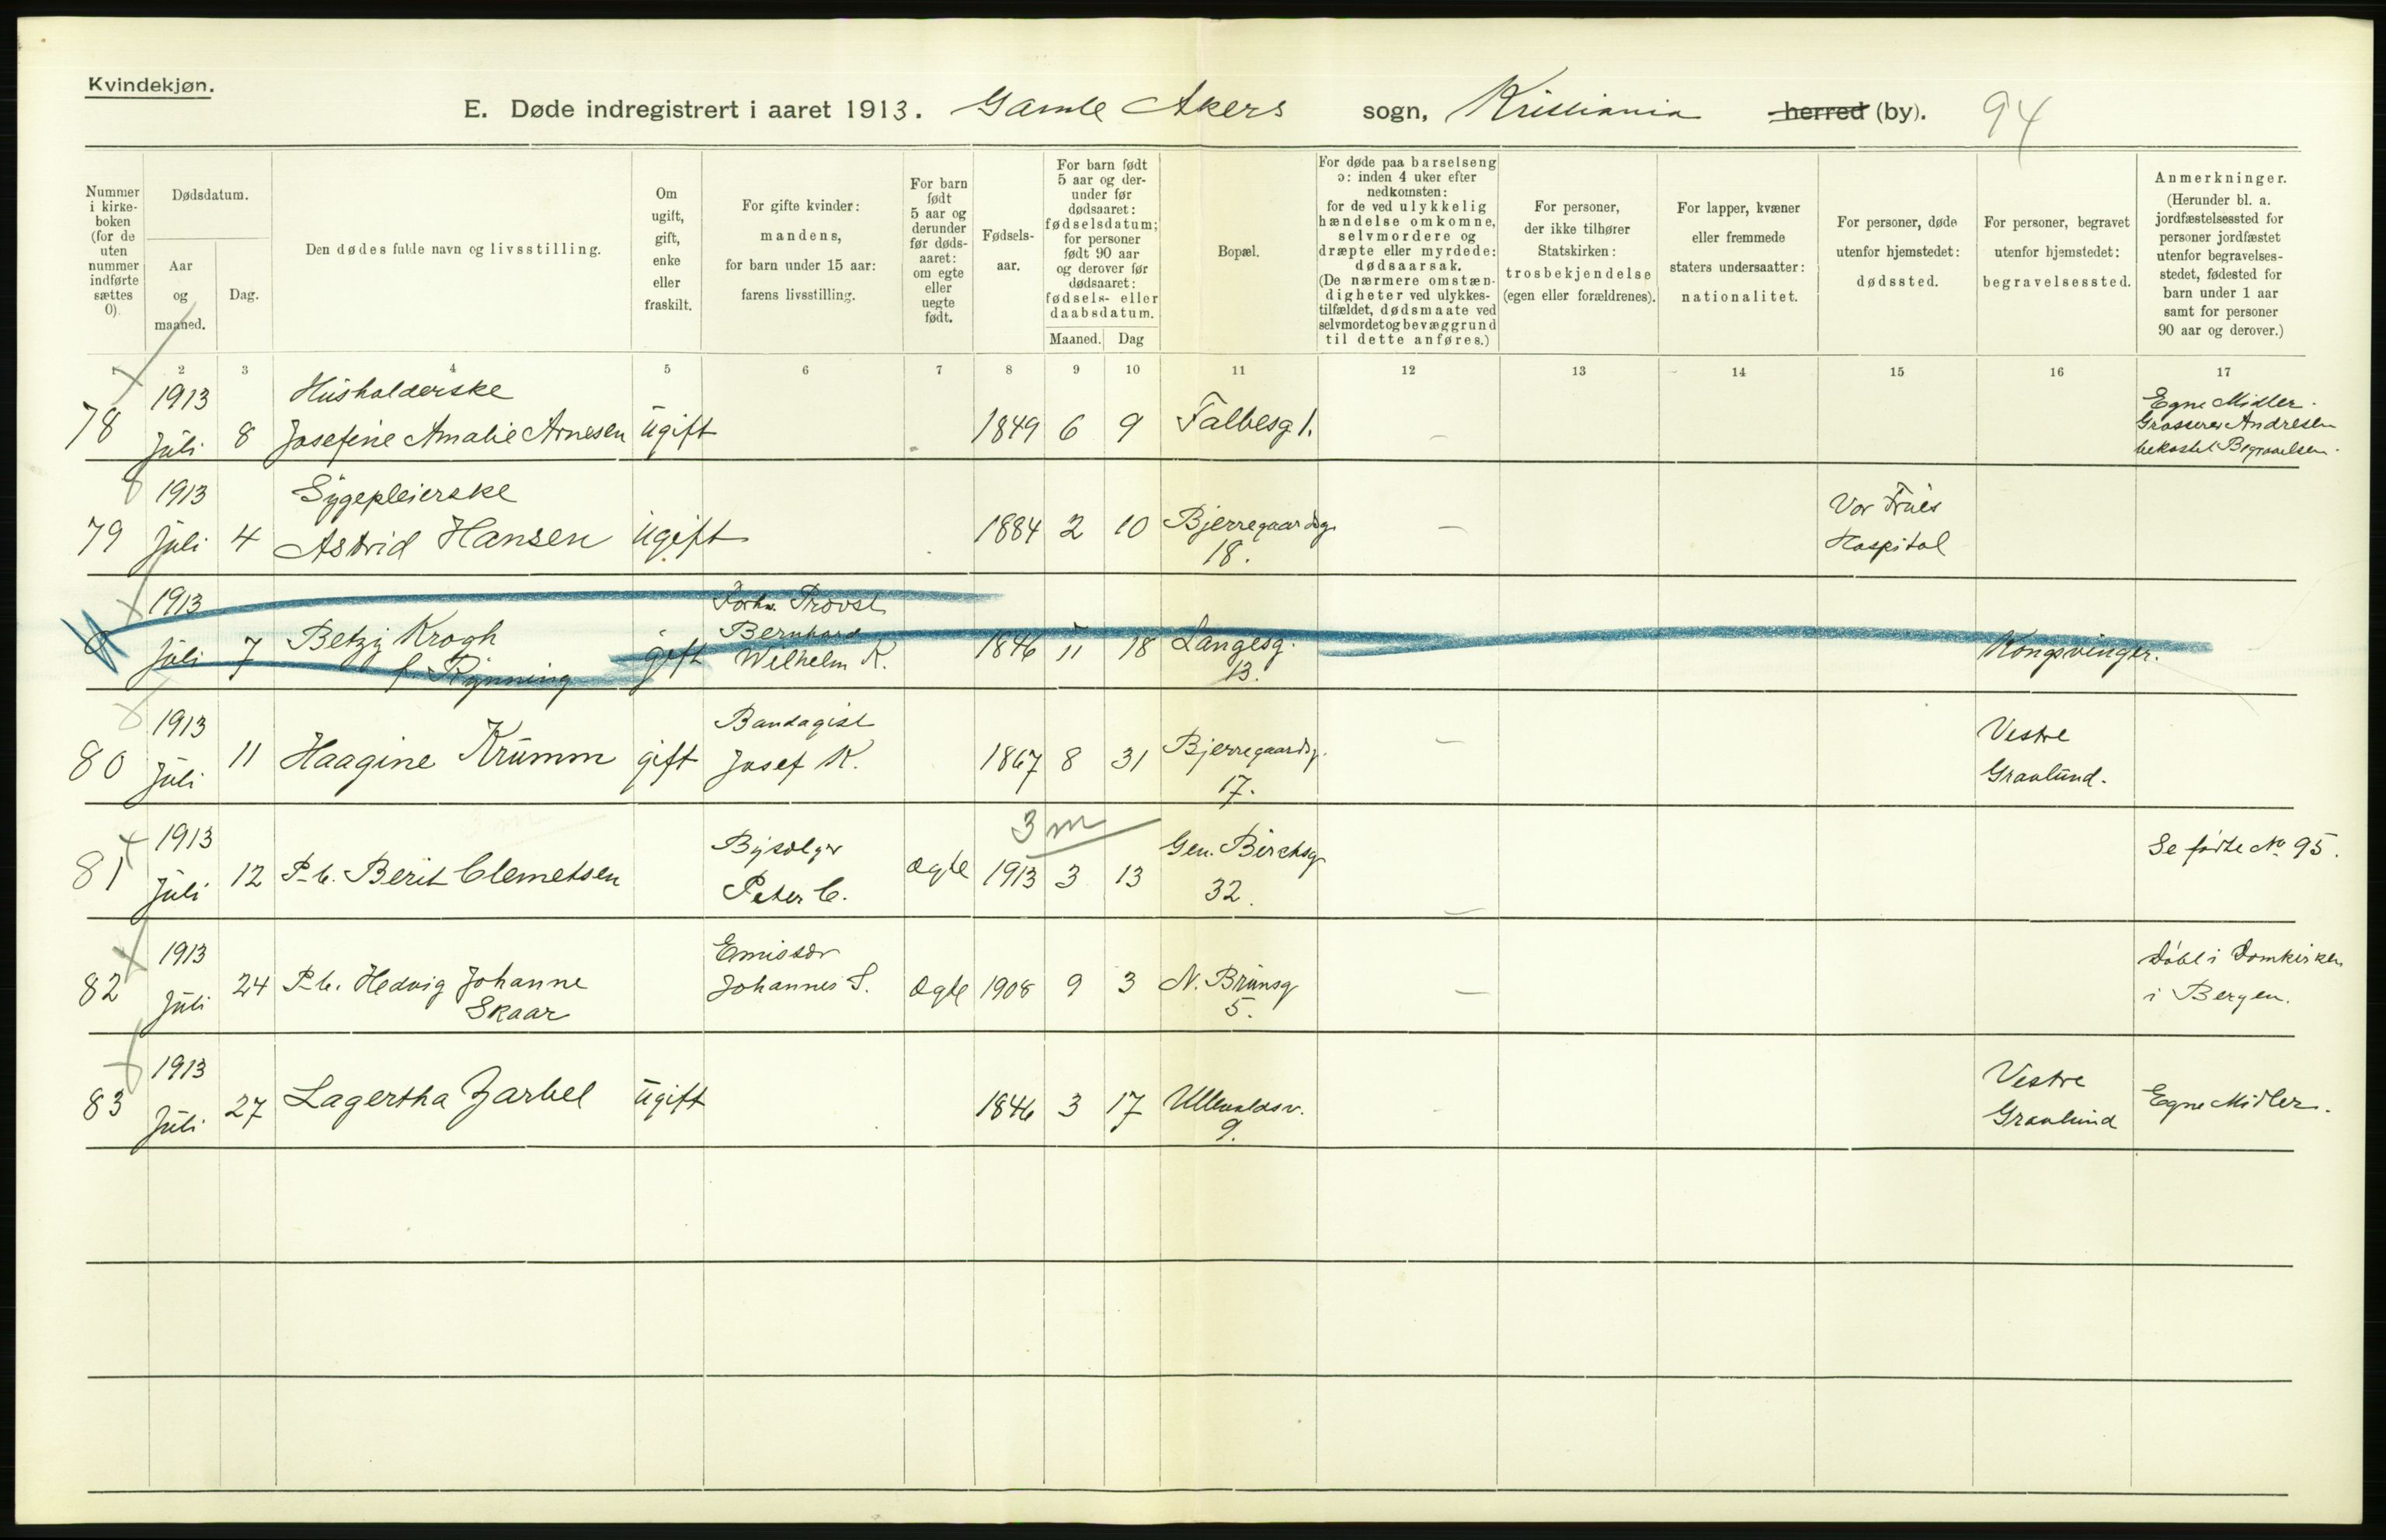 Kvindekjøn.
E. Døde indregistrert i aaret 1913. Gamle Akers sogn, Kristiania herred (by). 94
Nummer i kirke-boken (for de uten nummer indførte sættes 0).
Dødsdatum.
Aar og maaned.
Dag.
Den dødes fulde navn og livsstilling.
Om ugift, gift, enke eller fraskilt.
For gifte kvinder: mandens, for barn under 15 aar: farens livsstilling.
For barn født 5 aar og derunder før døds-aaret: om egte eller uegte født.
Fødsels-aar.
For barn født 5 aar og der-under før dødsaaret: fødselsdatum; for personer født 90 aar og derover før dødsaaret: fødsels- eller daabsdatum.
Maaned. Dag
Bopæl.
For døde paa barselseng ɔ: inden 4 uker efter nedkomsten: for de ved ulykkelig hændelse omkomne, selvmordere og dræpte eller myrdede: dødsaarsak. (De nærmere omstæn-digheter ved ulykkes-tilfældet, dødsmaate ved selvmordet og bevæggrund til dette anføres.)
For personer, der ikke tilhører Statskirken: trosbekjendelse (egen eller forældrenes).
For lapper, kvæner eller fremmede staters undersaatter: nationalitet.
For personer, døde utenfor hjemstedet: dødssted.
For personer, begravet utenfor hjemstedet: begravelsessted.
Anmerkninger. (Herunder bl. a. jordfæstelsessted for personer jordfæstet utenfor begravelses-stedet, fødested for barn under 1 aar samt for personer 90 aar og derover.)
1 2 3 4 5 6 7 8 9 10 11 12 13 14 15 16 17
1913 Husholderske Egne Midler.
78 Juli 8 Josefine Amalie Arnesen Ugift 1849 6 9 Falbesg 1. — Grosserer Andresen
bekostet Begravelsen.
1913 Sygepleierske Vor Frues
79 Juli 4 Astrid Hansen Ugift 1884 2 10 Bjerregaardsg. — Hospital
18.
1913 Forhv. Provst
0 Juli 7 Betzy Krogh gift Bernhard 1846 11 18 Langesg. Kongsvinger.
f. Rynning Wilhelm K. 13.
1913 Bandagist Vestre
80 Juli 11 Haagine Krumm gift Josef K. 1867 8 31 Bjerregaardsg. — Gravlund.
17.
3 m
1913 Bysælger Gen. Birchsg
81 Juli 12 P. b. Berit Clemetsen Peter C. Ægte 1913 3 13 32. — Se fødte No 95.
1913 Emissær Døbt i Domkirken
82 Juli 24 P. b. Hedvig Johanne Johannes S. Ægte 1908 9 3 N. Brunsg — i Bergen.
Skaar 5.
1913 Vestre
83 Juli 27 Lagertha Zarbel Ugift 1846 3 17 Ullevaldsv. Gravlund Egne Midler.
9.